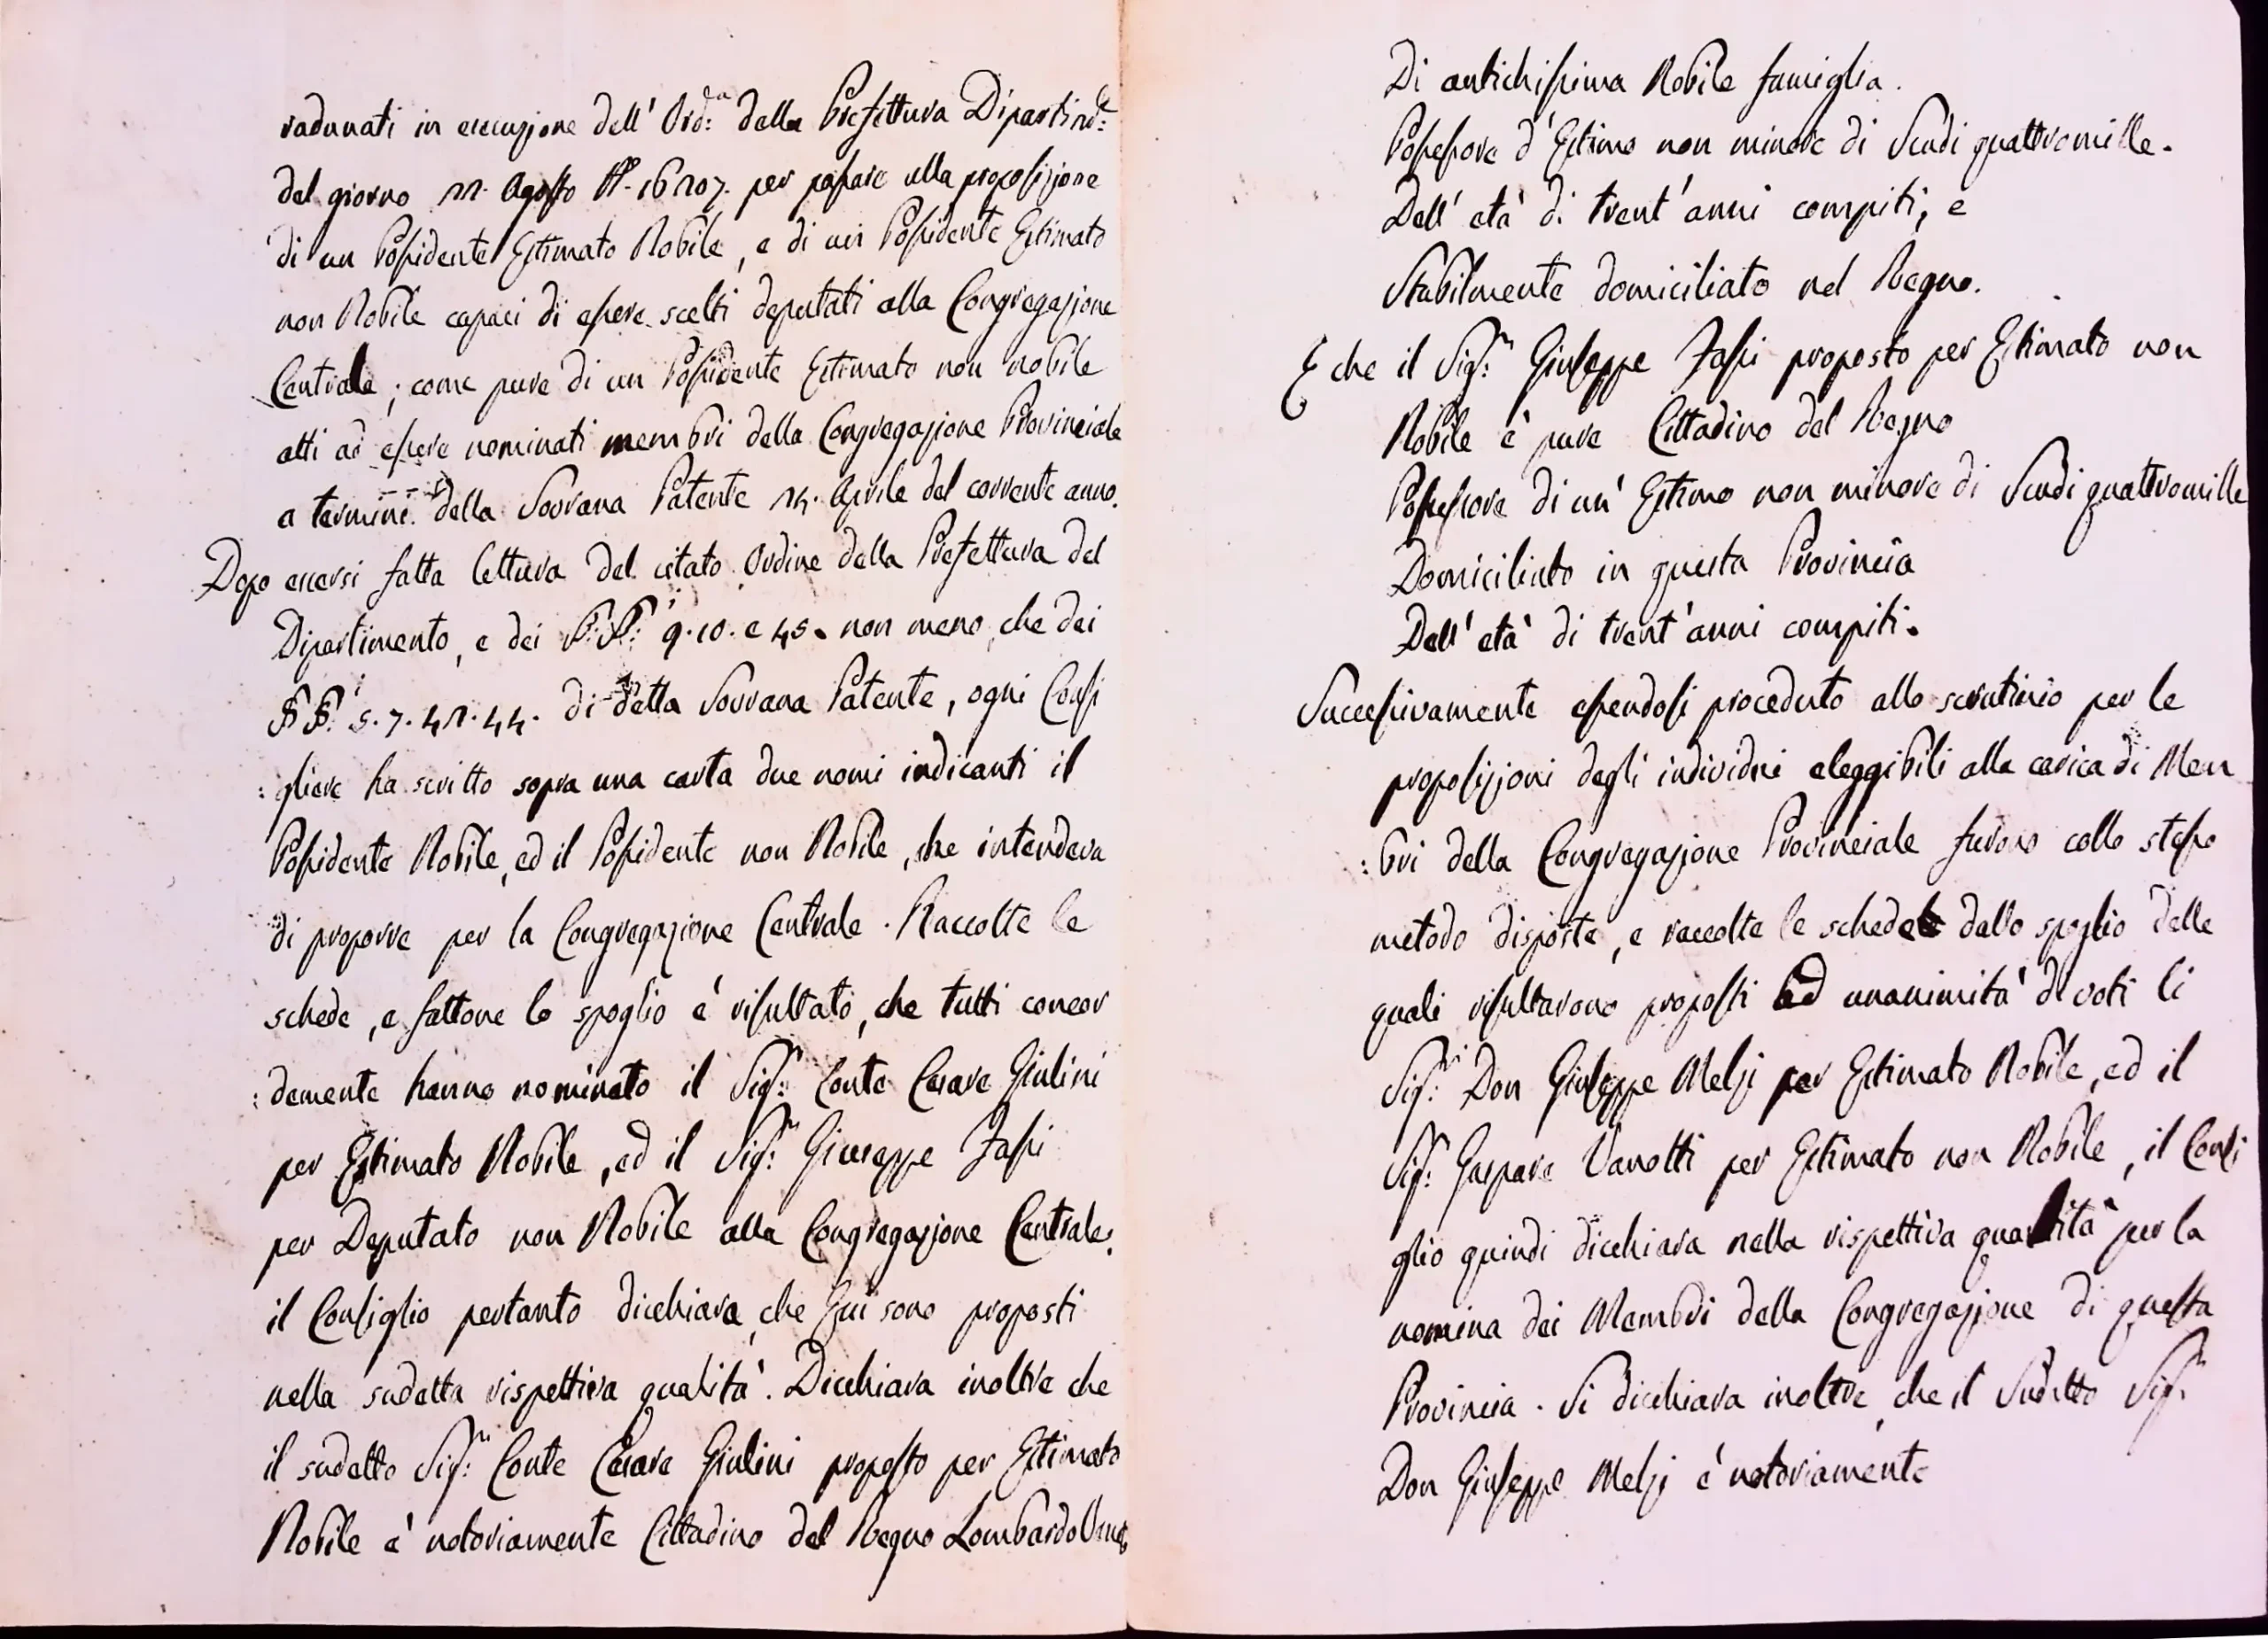 radunati in esecuzione dell' Ord.a della Prefettura Dipartim.le
del giorno 22. Agosto N. 16207. per passare alla proposizione
di un Possidente Estimato Nobile, e di un Possidente Estimato
non Nobile capaci di essere scelti deputati alla Congregazione
Centrale; come pure di un Possidente Estimato non nobile
atti ad essere nominati membri della Congregazione Provinciale
a termini della Sovrana Patente 24. Aprile del corrente anno.
Dopo essersi fatta lettura del citato Ordine della Prefettura del
Dipartimento, e dei §.§.i 9. 10. e 45. non meno, che dei
§§.i 5. 7. 42. 44. di detta Sovrana Patente, ogni Consi
:gliere ha scritto sopra una carta due nomi indicanti il
Possidente Nobile, ed il Possidente non Nobile, che intendeva
di proporre per la Congregazione Centrale. Raccolte le
schede, e fattone lo spoglio è risultato, che tutti concor
:demente hanno nominato il Sig.r Conte Cesare Giulini
per Estimato Nobile, ed il Sig.r Giuseppe Fassi
per Deputato non Nobile alla Congregazione Centrale.
il Consiglio pertanto dicchiara, che qui sono proposti
nella sudetta rispettiva qualità. Dicchiara inoltre che
il sudetto Sig.r Conte Cesare Giulini proposto per Estimato
Nobile è notoriamente Cittadino del Regno Lombardo Veneto
Di antichissima Nobile famiglia.
Possessore d'Estimo non minore di Scudi quattromille.
Dell' età di trent'anni compiti, e
Stabilmente domiciliato nel Regno.
E che il Sig.r Giuseppe Fassi proposto per Estimato non
Nobile è pure Cittadino del Regno
Possessore di un' Estimo non minore di Scudi quattromille
Domiciliato in questa Provincia
Dell' età di trent'anni compiti.
Successivamente essendosi proceduto allo scrutinio per le
proposizioni degli individui eleggibili alla carica di Mem
:bri della Congregazione Provinciale furono collo stesso
metodo disposte, e raccolte le schede dallo spoglio delle
quali risultarono proposti ad unanimità di voti li
Sig.ri Don Giuseppe Melzi per Estimato Nobile, ed il
Sig.r Gaspare Vanotti per Estimato non Nobile, il Consi
glio quindi dicchiara nella rispettiva qualità per la
nomina dei Membri della Congregazione di questa
Provincia. Si dicchiara inoltre, che il Sudetto Sig.r
Don Giuseppe Melzi è notoriamente